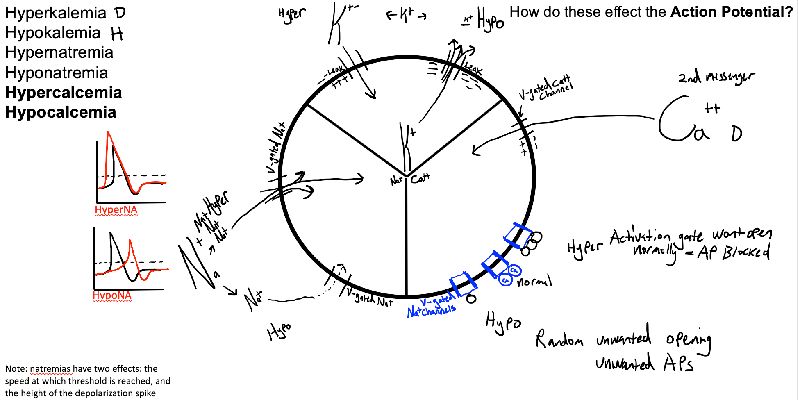 Hyperkalemia D
Hypokalemia H
Hypernatremia
Hyponatremia
Hypercalcemia
Hypocalcemia
How do these effect the Action Potential?
Hyper
K+
←K+→
K+ Hypo
Leak
Leak
V-gated Ca++
Channel
2nd messenger
Ca++ D
V-gated Na+
K+
Na+
Ca++
HyperNA
HypoNA
Na+ Hyper
Na+
Na+
Na+
Na+
Hypo
V-gated Na+
V-gated
Na+ Channels
normal
Hyper
Activation gate won't open
normally = AP Blocked
Hypo
Random unwanted opening
unwanted APs
Note: natremias have two effects: the
speed at which threshold is reached, and
the height of the depolarization spike